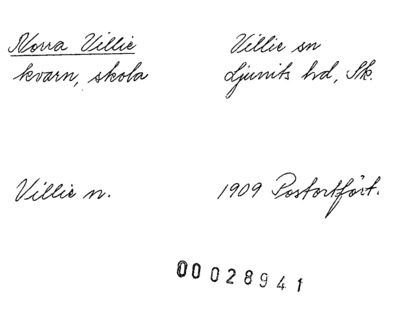 Norra Villie
Villie sn
kvarn, skola
Ljunits hd, Sk.
Villie n.
1909 Postortfört.
00028941